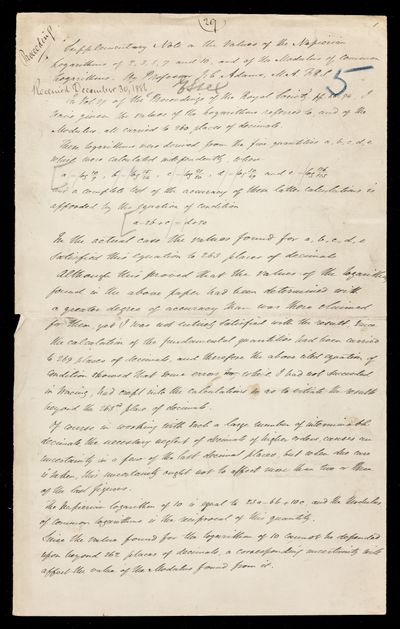 (29)
1
Proceedings
Supplementary Note on the Values of the Napierian
Logarithms of 2, 3, 5, 7 and 10, and of the Modulus of Common
Logarithms. By Professor J. C. Adams, M.A. F.R.S.
Received December 30, 1886
5
In Vol. 27 of the Proceedings of the Royal Society pp. I
have given the values of the logarithms referred to and of the
Modulus, all carried to 260 places of decimals.
These logarithms were derived from the five quantities a, b, c, d, e
which were calculated independently, where
a = log 10/9, b = log 25/24, c = log 81/80, d = log 50/49 and e = log 126/125
and a complete test of the accuracy of these latter calculations is
afforded by the equation of condition
a - 2b + c = d + 2e
In the actual case the values found for a, b, c, d, e
satisfied this equation to 263 places of decimals
Although this proved that the values of the logarithms
found in the above paper had been determined with
a greater degree of accuracy than was there claimed
for them yet I was not entirely satisfied with the result, since
the calculation of the fundamental quantities had been carried
to 269 places of decimals, and therefore the above cited equation of
condition shewed that some errors which I had not succeeded
in tracing, had crept into the calculations so as to vitiate the results
beyond the 263rd place of decimals.
Of course in working with such a large number of interminable
decimals the necessary neglect of decimals of higher orders causes an
uncertainty in a few of the last decimal places, but when due care
is taken, this uncertainty ought not to affect more than two or three
of the last figures.
The Napierian logarithm of 10 is equal to 23a - 6b + 10c, and the Modulus
of common logarithms is the reciprocal of this quantity.
Since the value found for the logarithm of 10 cannot be depended
upon beyond 262 places of decimals, a corresponding uncertainty will
affect the value of the Modulus found from it.